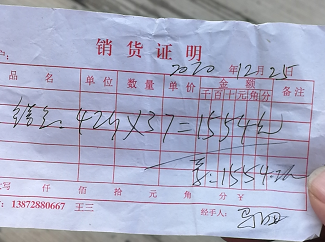 销货证明
2020年12月25日
品名 单位 数量 单价 金额 备注
千百十元角分
42个×37=1554元
1554元
仟 佰 拾 元 角 分 ¥
：13872880667 王三
经手人：